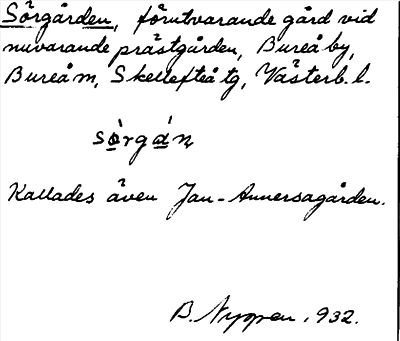 Sörgården, förutvarande gård vid
nuvarande prästgården, Bureå by,
Bureå m, Skellefteå tg, Västerb. l.
Kallades även Jan-Annersagården.
B. Nygren, 932.